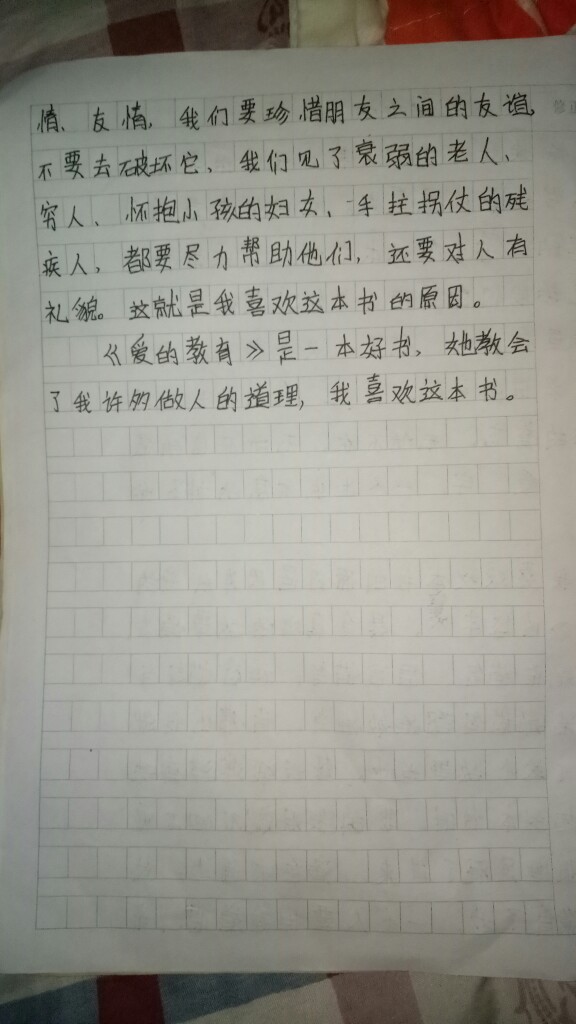 情、友情，我们要珍惜朋友之间的友谊，
不要去破坏它，我们见了衰弱的老人、
穷人、怀抱小孩的妇女、手拄拐仗的残
疾人，都要尽力帮助他们，还要对人有
礼貌。这就是我喜欢这本书的原因。
《爱的教育》是一本好书，她教会
了我许多做人的道理，我喜欢这本书。